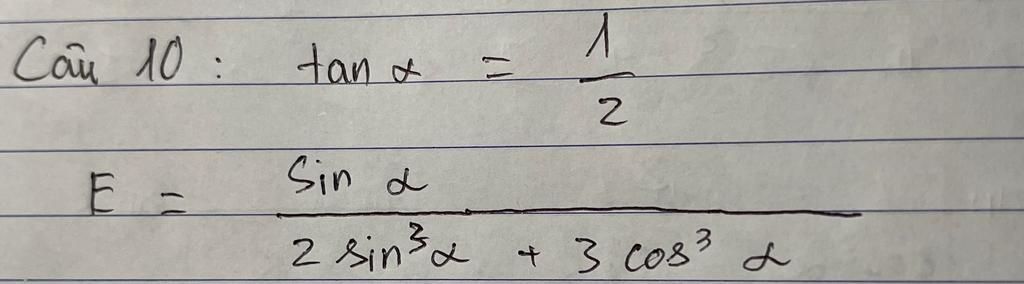 Câu 10 : tan α = 1/2
E = sin α / (2 sin³α + 3 cos³ α)